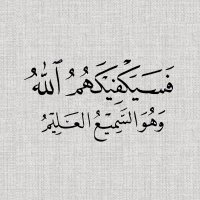 فَسَيَكْفِيكَهُمُ ٱللَّهُ
وَهُوَ السَّمِيعُ الْعَلِيمُ